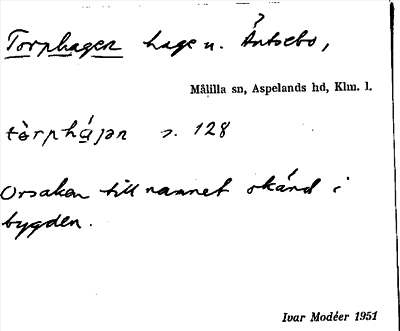 Torphagen hage u. Äntsebo,
Målilla sn, Aspelands hd, Klm. l.
tòrphájən s. 128
Orsaken till namnet okänd i
bygden.
Ivar Modéer 1951